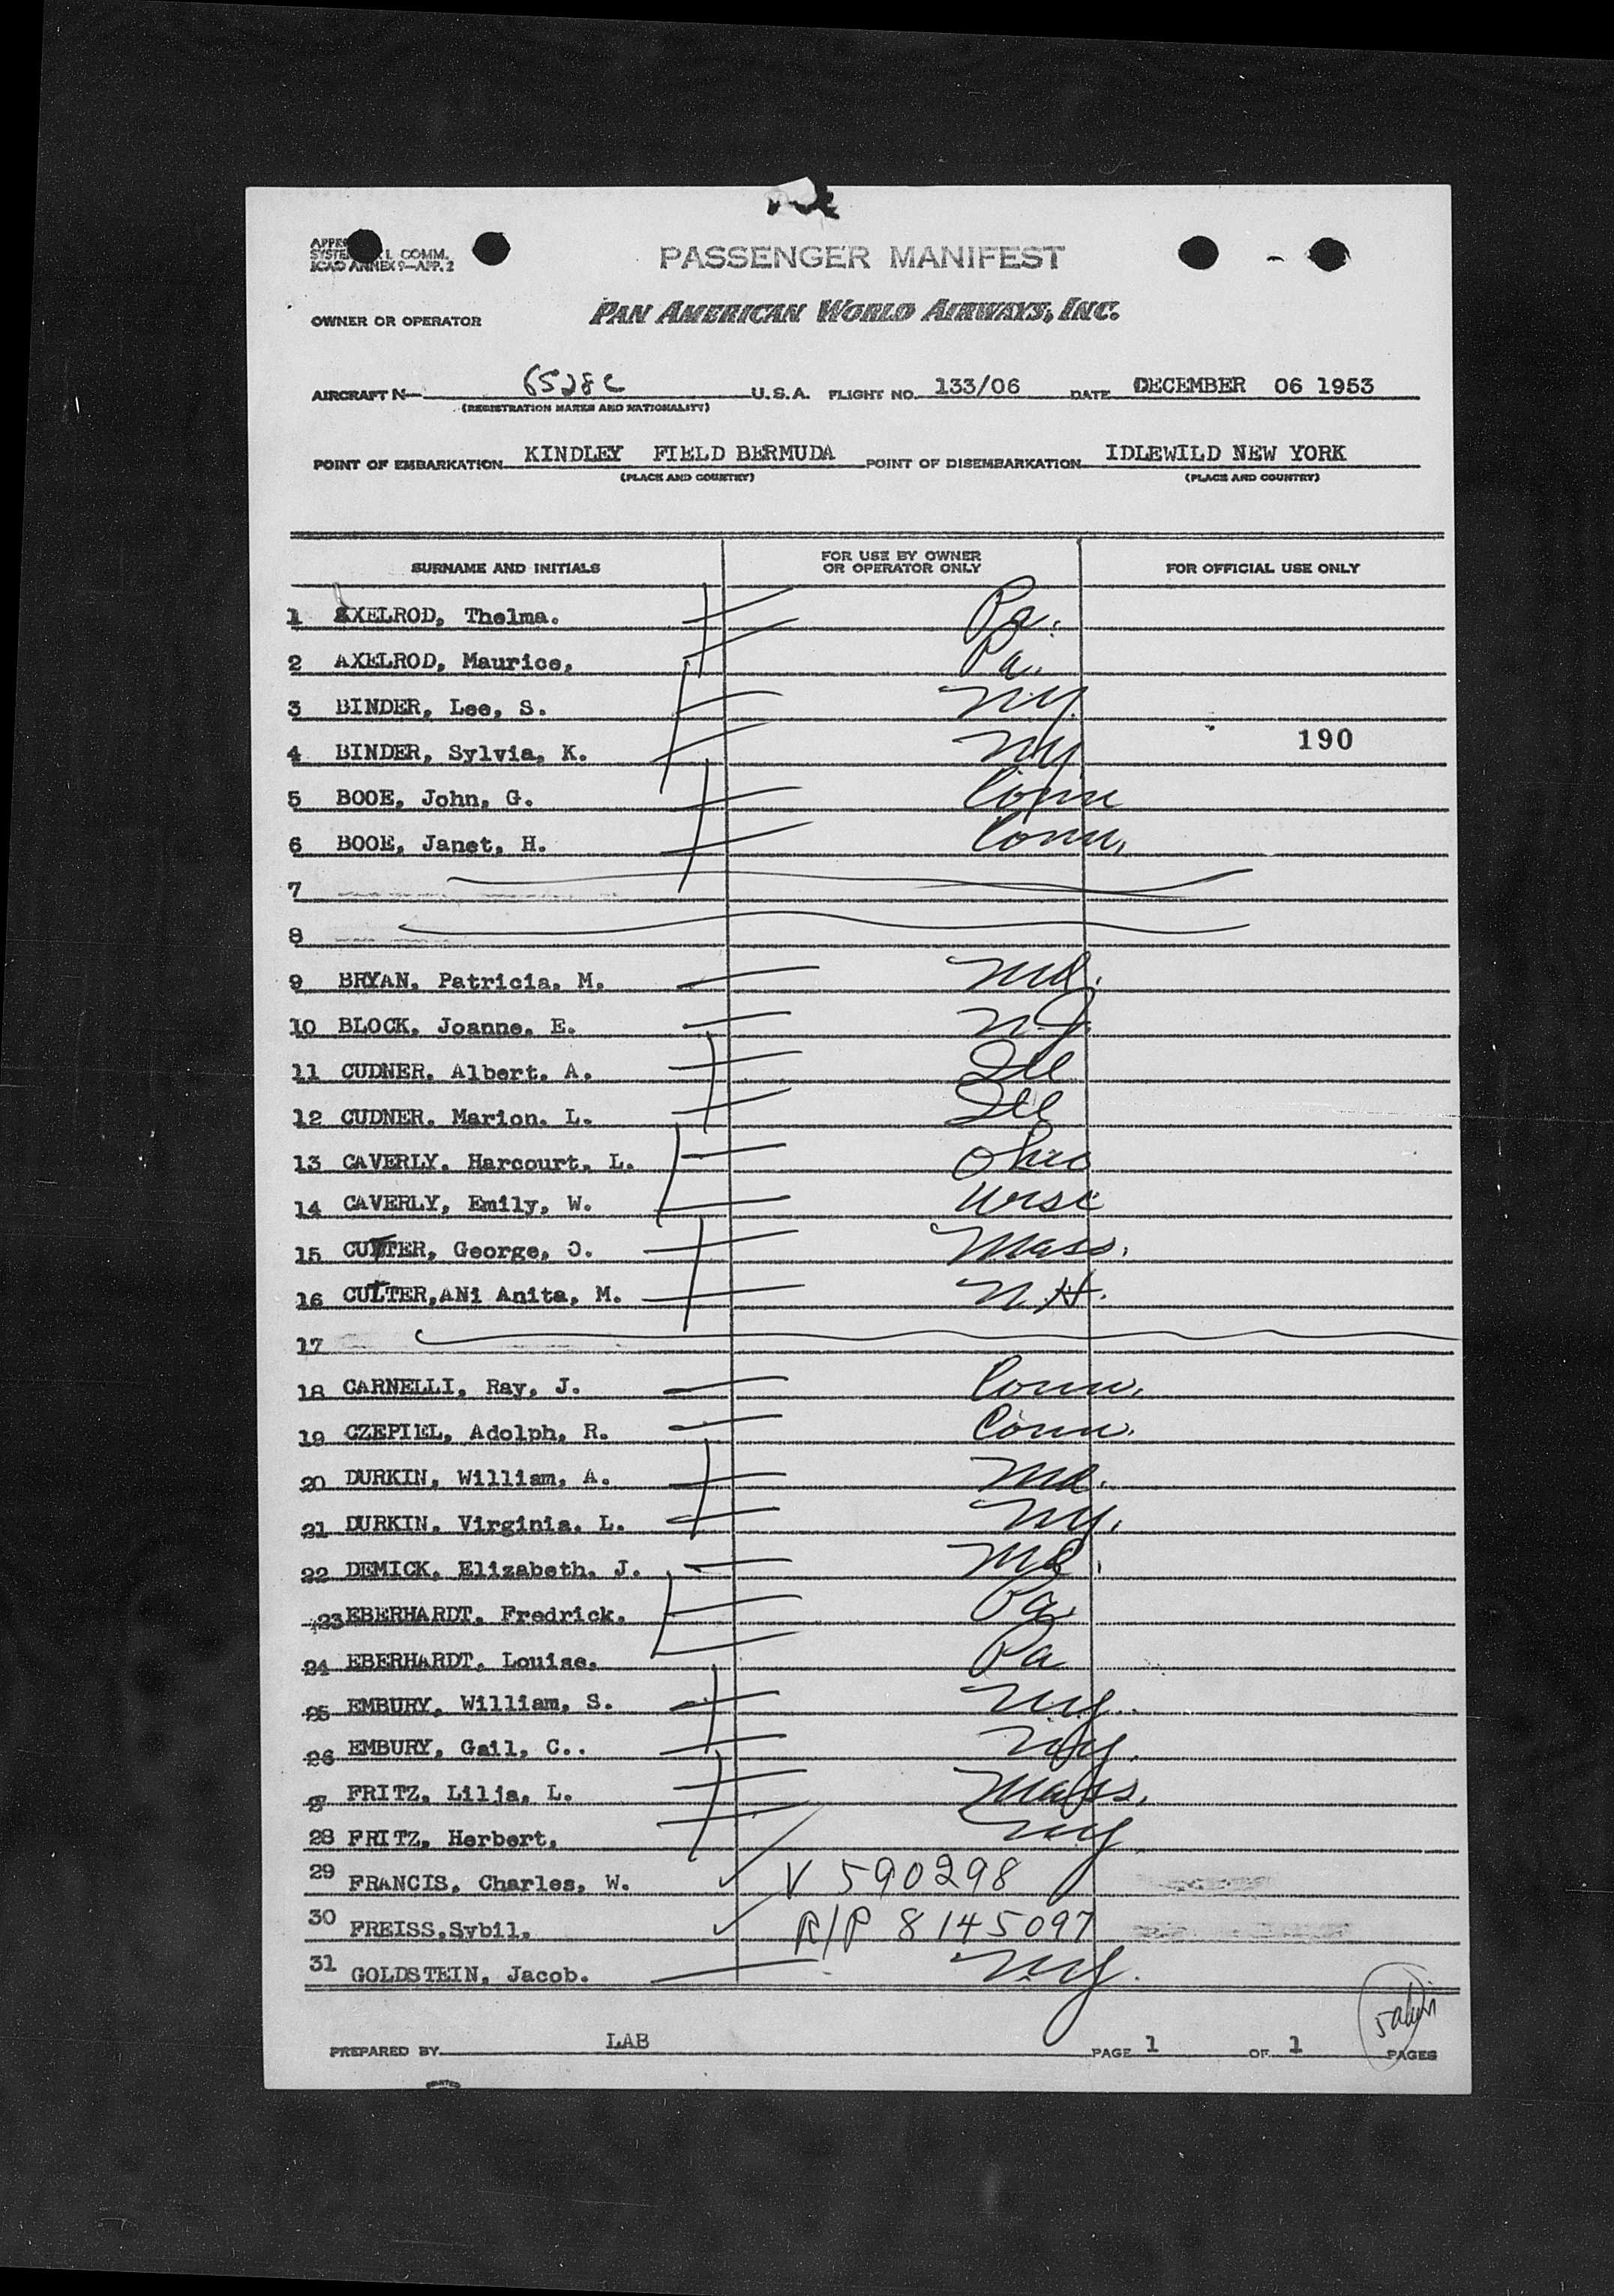 SYSTE I. COMM.
ICAO ANNEX 9—APP. 2
PASSENGER MANIFEST
OWNER OR OPERATOR PAN AMERICAN WORLD AIRWAYS, INC.
AIRCRAFT N— 6528C U.S.A. FLIGHT NO. 133/06 DATE DECEMBER 06 1953
(REGISTRATION MARKS AND NATIONALITY)
POINT OF EMBARKATION KINDLEY FIELD BERMUDA POINT OF DISEMBARKATION IDLEWILD NEW YORK
(PLACE AND COUNTRY) (PLACE AND COUNTRY)
SURNAME AND INITIALS FOR USE BY OWNER OR OPERATOR ONLY FOR OFFICIAL USE ONLY
1 AXELROD, Thelma. Pa.
2 AXELROD, Maurice, Pa.
3 BINDER, Lee, S. NY.
190
4 BINDER, Sylvia, K. NY
5 BOOE, John, G. Conn
6 BOOE, Janet, H. Conn.
7
8
9 BRYAN, Patricia, M. Md.
10 BLOCK, Joanne, E. N.J.
11 CUDNER, Albert, A. Ill
12 CUDNER, Marion. L. Ill
13 CAVERLY, Harcourt, L. Ohio
14 CAVERLY, Emily, W. Wisc
15 CUTTER, George, O. Mass.
16 CUTTER,ANi Anita, M. N.H.
17
18 CARNELLI, Ray, J. Conn.
19 CZEPIEL, Adolph, R. Conn.
20 DURKIN, William, A. Md.
21 DURKIN, Virginia, L. NY.
22 DEMICK, Elizabeth, J. Md.
23 EBERHARDT, Fredrick. Pa.
24 EBERHARDT, Louise. Pa
25 EMBURY, William, S. NY.
26 EMBURY, Gail, C.. NY.
27 FRITZ, Lilja, L. Mass.
28 FRITZ, Herbert, NY
29 FRANCIS, Charles, W. V 590298
30 FREISS,Sybil. R/P 8145097
31 GOLDSTEIN, Jacob. NY.
PREPARED BY LAB PAGE 1 OF 1 PAGES
PRINTED